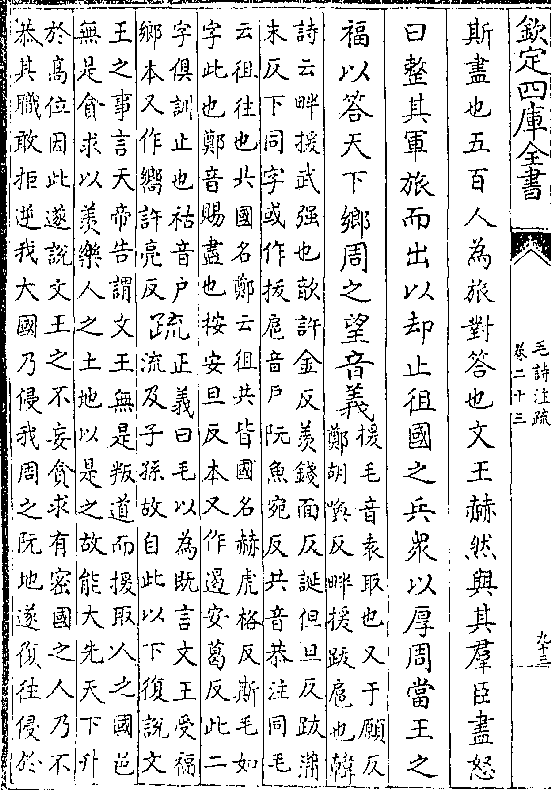 欽定四庫全書
毛詩注疏
卷二十三
九十三
斯盡也五百人為旅對答也文王赫然與其羣臣盡怒
曰整其軍旅而出以却止徂國之兵衆以厚周當王之
福以答天下鄉周之望音義
援毛音袁取也又于願反
鄭胡喚反畔援跋扈也韓
詩云畔援武强也歆許金反羨錢面反誕但旦反跋蒲
末反下同字或作拔扈音戶阮魚宛反共音恭注同毛
云徂往也共國名鄭云徂共皆國名赫虎格反斯毛如
字此也鄭音賜盡也按安旦反本又作遏安葛反此二
字俱訓止也祜音户
鄉本又作嚮許亮反
疏
正義曰毛以為既言文王受福
流及子孫故自此以下復說文
王之事言天帝告謂文王無是叛道而援取人之國邑
無是貪求以羨樂人之土地以是之故能大先天下升
於高位因此遂說文王之不妄貪求有密國之人乃不
恭其職敢拒逆我大國乃侵我周之阮地遂復往侵於